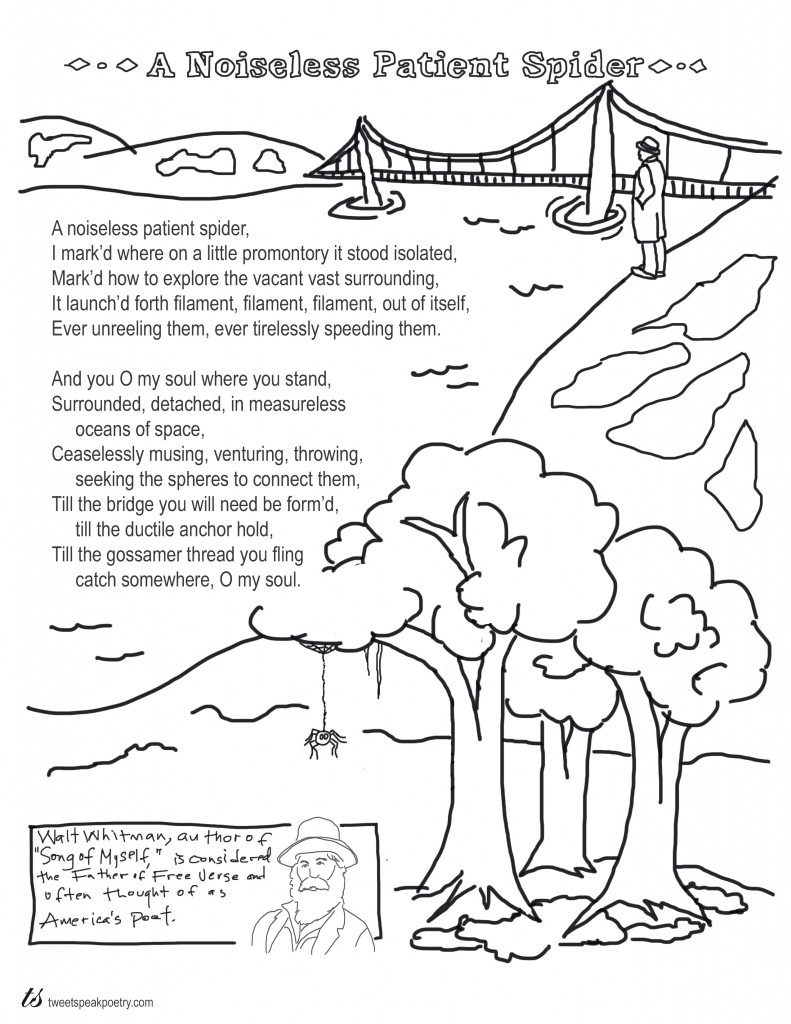 A Noiseless Patient Spider
A noiseless patient spider,
I mark’d where on a little promontory it stood isolated,
Mark’d how to explore the vacant vast surrounding,
It launch’d forth filament, filament, filament, out of itself,
Ever unreeling them, ever tirelessly speeding them.
And you O my soul where you stand,
Surrounded, detached, in measureless
oceans of space,
Ceaselessly musing, venturing, throwing,
seeking the spheres to connect them,
Till the bridge you will need be form’d,
till the ductile anchor hold,
Till the gossamer thread you fling
catch somewhere, O my soul.
Walt Whitman, author of
"Song of Myself," is considered
the Father of Free Verse and
often thought of as
America's Poet.
ts tweetspeakpoetry.com